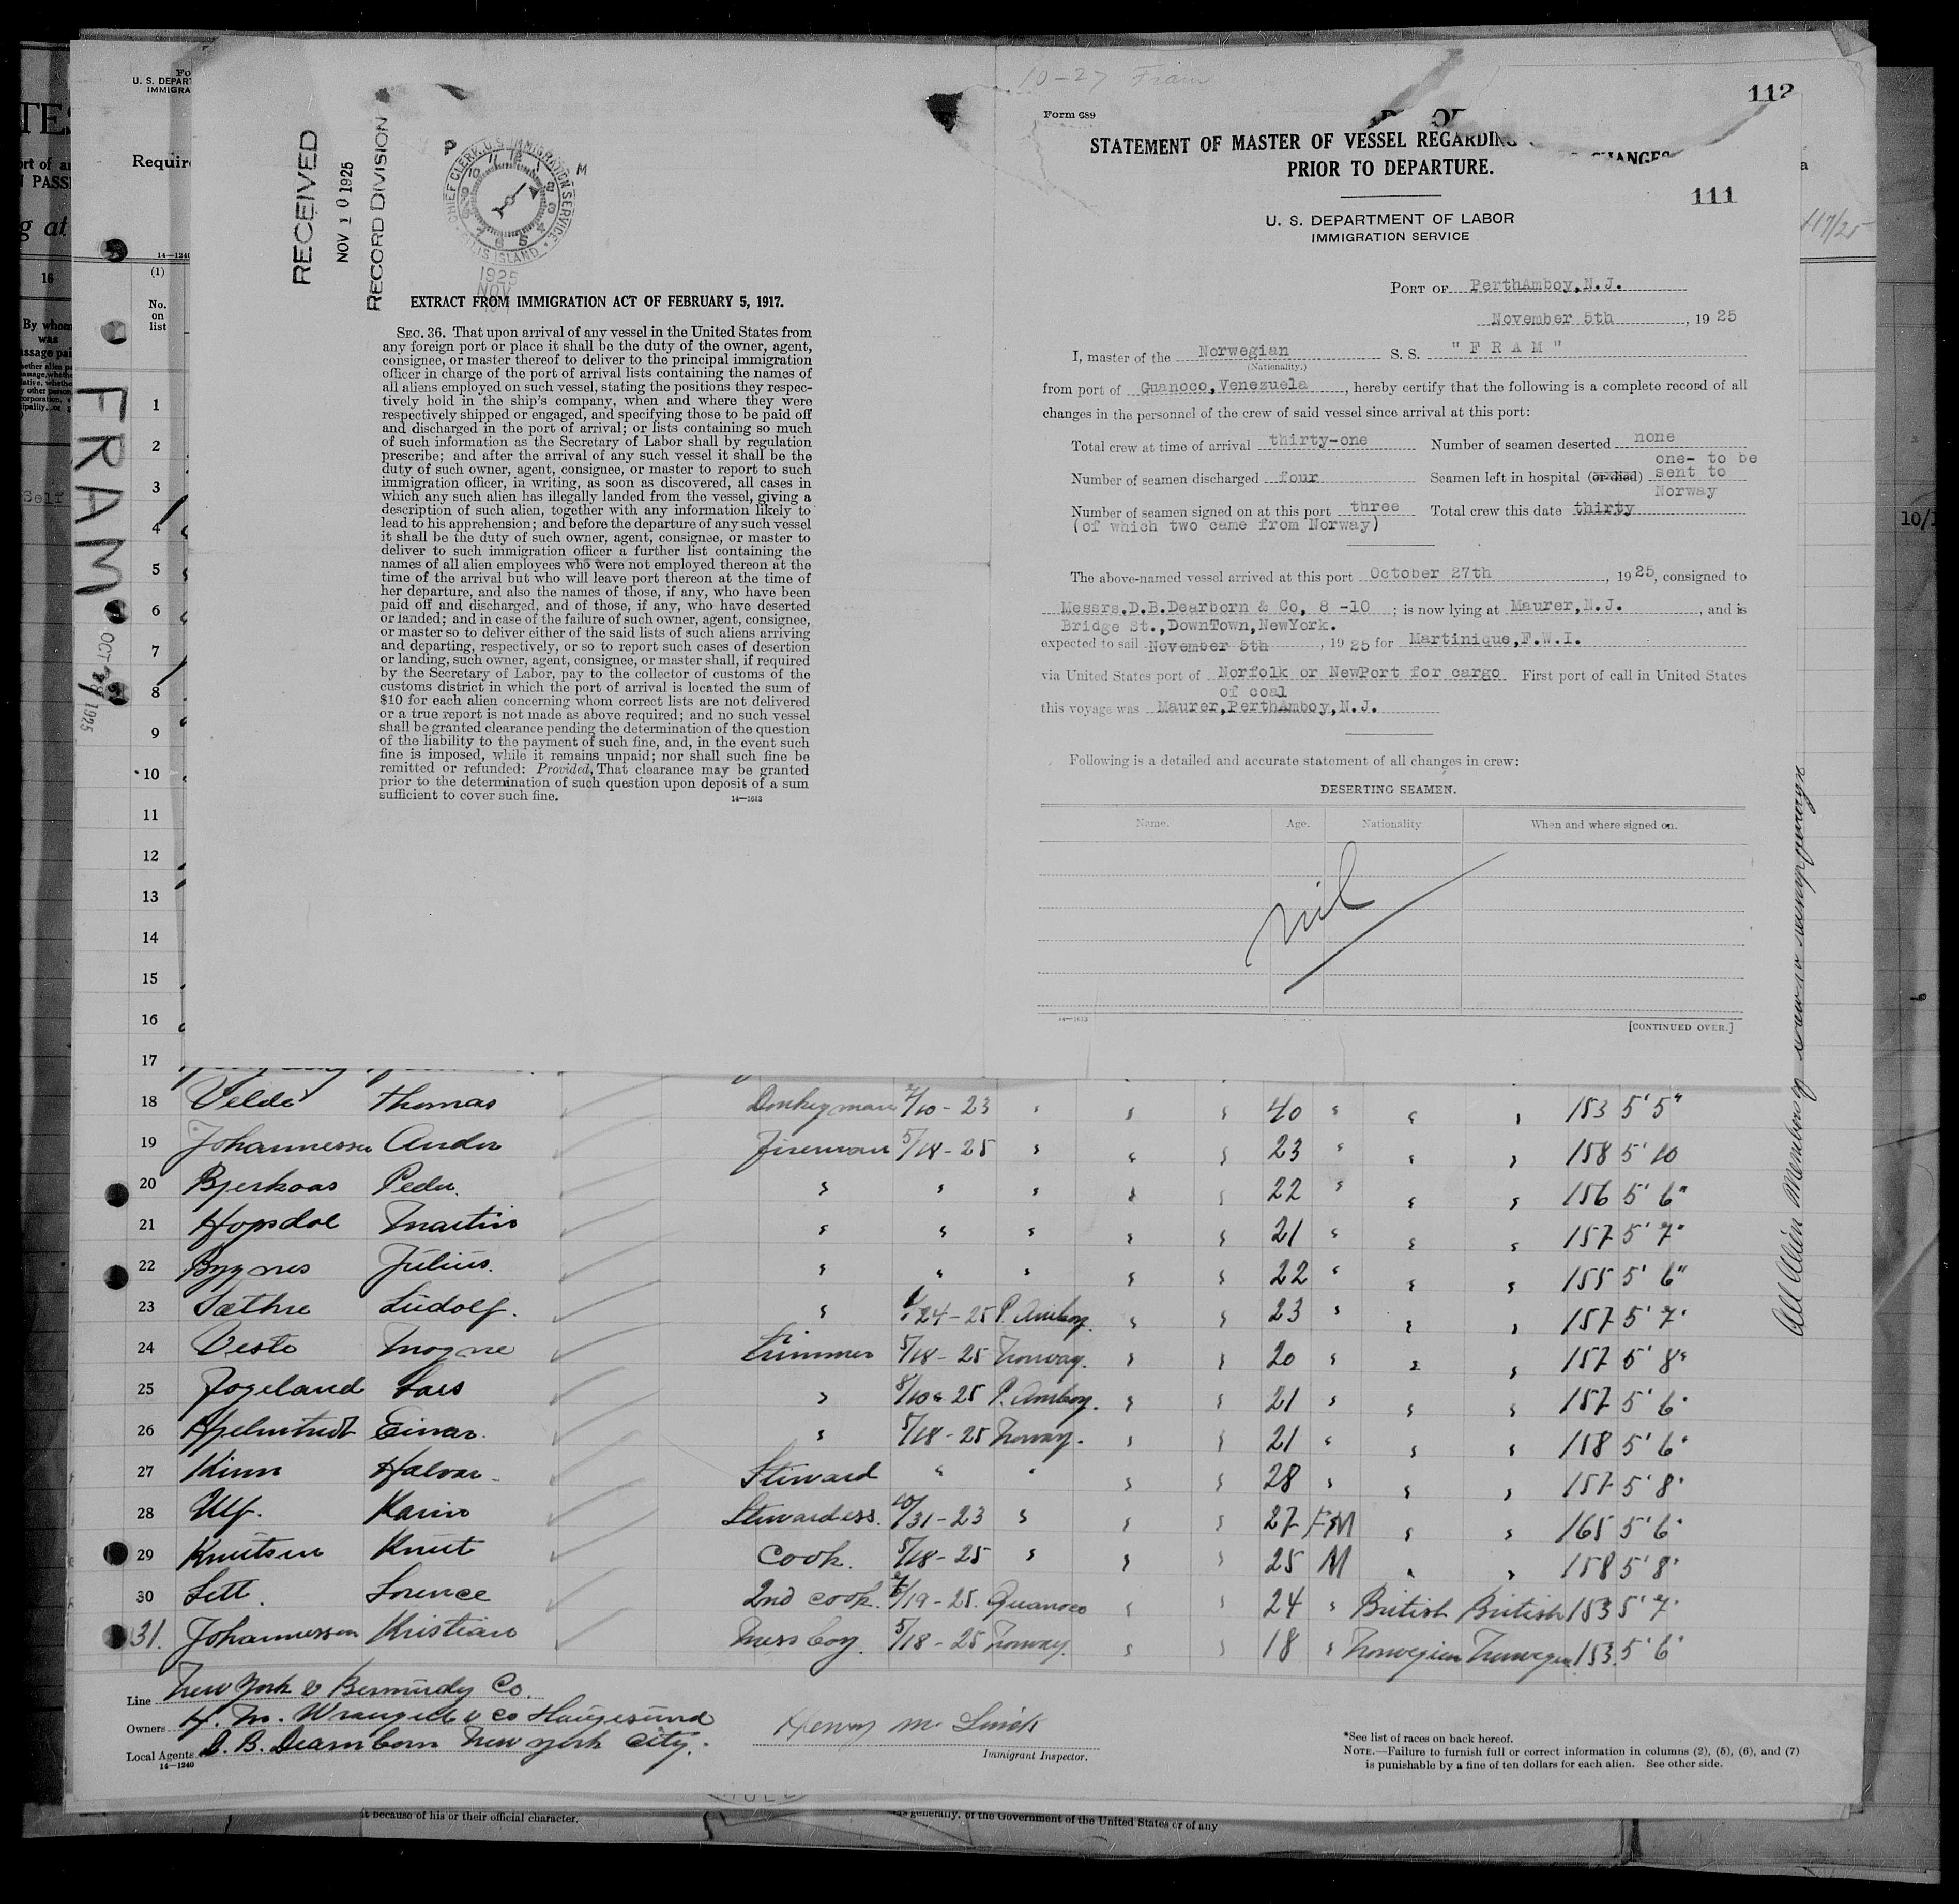 TES
ort of
N PASS
g at
16
By whom
was
Self
Fo
U. S. DEPAR
IMMIGRA
Require
14—1240
(1)
No.
on
list
FRAM
OCT 27 1925
1
2
3
4
5
6
7
8
9
10
11
12
13
14
15
16
17
RECEIVED
NOV 10 1925
RECORD DIVISION
P M
CHIEF CLERK, U. S. IMMIGRATION SERVICE
ELLIS ISLAND
1925
NOV
EXTRACT FROM IMMIGRATION ACT OF FEBRUARY 5, 1917.
SEC. 36. That upon arrival of any vessel in the United States from
any foreign port or place it shall be the duty of the owner, agent,
consignee, or master thereof to deliver to the principal immigration
officer in charge of the port of arrival lists containing the names of
all aliens employed on such vessel, stating the positions they respec-
tively hold in the ship's company, when and where they were
respectively shipped or engaged, and specifying those to be paid off
and discharged in the port of arrival; or lists containing so much
of such information as the Secretary of Labor shall by regulation
prescribe; and after the arrival of any such vessel it shall be the
duty of such owner, agent, consignee, or master to report to such
immigration officer, in writing, as soon as discovered, all cases in
which any such alien has illegally landed from the vessel, giving a
description of such alien, together with any information likely to
lead to his apprehension; and before the departure of any such vessel
it shall be the duty of such owner, agent, consignee, or master to
deliver to such immigration officer a further list containing the
names of all alien employees who were not employed thereon at the
time of the arrival but who will leave port thereon at the time of
her departure, and also the names of those, if any, who have been
paid off and discharged, and of those, if any, who have deserted
or landed; and in case of the failure of such owner, agent, consignee,
or master so to deliver either of the said lists of such aliens arriving
and departing, respectively, or so to report such cases of desertion
or landing, such owner, agent, consignee, or master shall, if required
by the Secretary of Labor, pay to the collector of customs of the
customs district in which the port of arrival is located the sum of
$10 for each alien concerning whom correct lists are not delivered
or a true report is not made as above required; and no such vessel
shall be granted clearance pending the determination of the question
of the liability to the payment of such fine, and, in the event such
fine is imposed, while it remains unpaid; nor shall such fine be
remitted or refunded: Provided, That clearance may be granted
prior to the determination of such question upon deposit of a sum
sufficient to cover such fine.
14—1613
10-27 Fram
112
Form 689
STATEMENT OF MASTER OF VESSEL REGARDING CHANGES
PRIOR TO DEPARTURE.
111
117/25
U. S. DEPARTMENT OF LABOR
IMMIGRATION SERVICE
PORT OF PerthAmboy,N.J.
November 5th, 1925
I, master of the Norwegian S. S. "FRAM"
(Nationality.)
from port of Guanoco,Venezuela, hereby certify that the following is a complete record of all
changes in the personnel of the crew of said vessel since arrival at this port:
Total crew at time of arrival thirty-one Number of seamen deserted none
Number of seamen discharged four Seamen left in hospital (or died) one- to be sent to Norway
Number of seamen signed on at this port three Total crew this date thirty
(of which two came from Norway)
The above-named vessel arrived at this port October 27th, 1925, consigned to
Messrs.D.B.Dearborn & Co, 8 -10 ; is now lying at Maurer,N.J., and is
Bridge St.,DownTown,NewYork.
expected to sail November 5th, 1925 for Martinique,F.W.I.
via United States port of Norfolk or NewPort for cargo First port of call in United States
of coal
this voyage was Maurer,PerthAmboy,N.J.
Following is a detailed and accurate statement of all changes in crew:
DESERTING SEAMEN.
Name. Age. Nationality When and where signed on.
nil
14—1613
[CONTINUED OVER.]
18 Velde Thomas Donkeyman 7/10-23 " " " 40 " " " 153 5'5"
19 Johannessen Ander Fireman 5/18-25 " " " 23 " " " 158 5'10
20 Bjerkaas Peder " " " " " 22 " " " 156 5'6"
21 Hopsdal Martin " " " " " 21 " " " 157 5'7"
22 Julius " " " " " 22 " " " 155 5'6"
23 Sæthre Ludolf " 24-25 P. Amboy " " 23 " " " 157 5'7"
24 Veste Mogne Trimmer 5/18-25 Norway " " 20 " " " 157 5'8"
25 Fogeland Lars " 8/10-25 P. Amboy " " 21 " " " 157 5'6"
26 Einar " 5/18-25 Norway " " 21 " " " 158 5'6"
27 Kinn Halvar Steward " " " " 28 " " " 157 5'8"
28 Ulf Karin Stewardess 10/31-23 " " " 27 FM " " 165 5'6"
29 Knutsen Knut Cook 5/18-25 " " " 25 M " " 158 5'8"
30 Lett Lorence 2nd cook /19-25 Guanoco " " 24 " British British 153 5'7"
31. Johannessen Kristian Mess boy 5/18-25 Norway " " 18 " Norwegian Norwegian 153 5'6"
All Alien Members of crew
Line New York & Bermudez Co.
Owners H. M. Wrangell & Co Haugesund
Local Agents D. B. Dearborn New York City.
14—1240
Immigrant Inspector.
*See list of races on back hereof.
NOTE.—Failure to furnish full or correct information in columns (2), (5), (6), and (7)
is punishable by a fine of ten dollars for each alien. See other side.
because of his or their official character.
generally, of the Government of the United States or of any